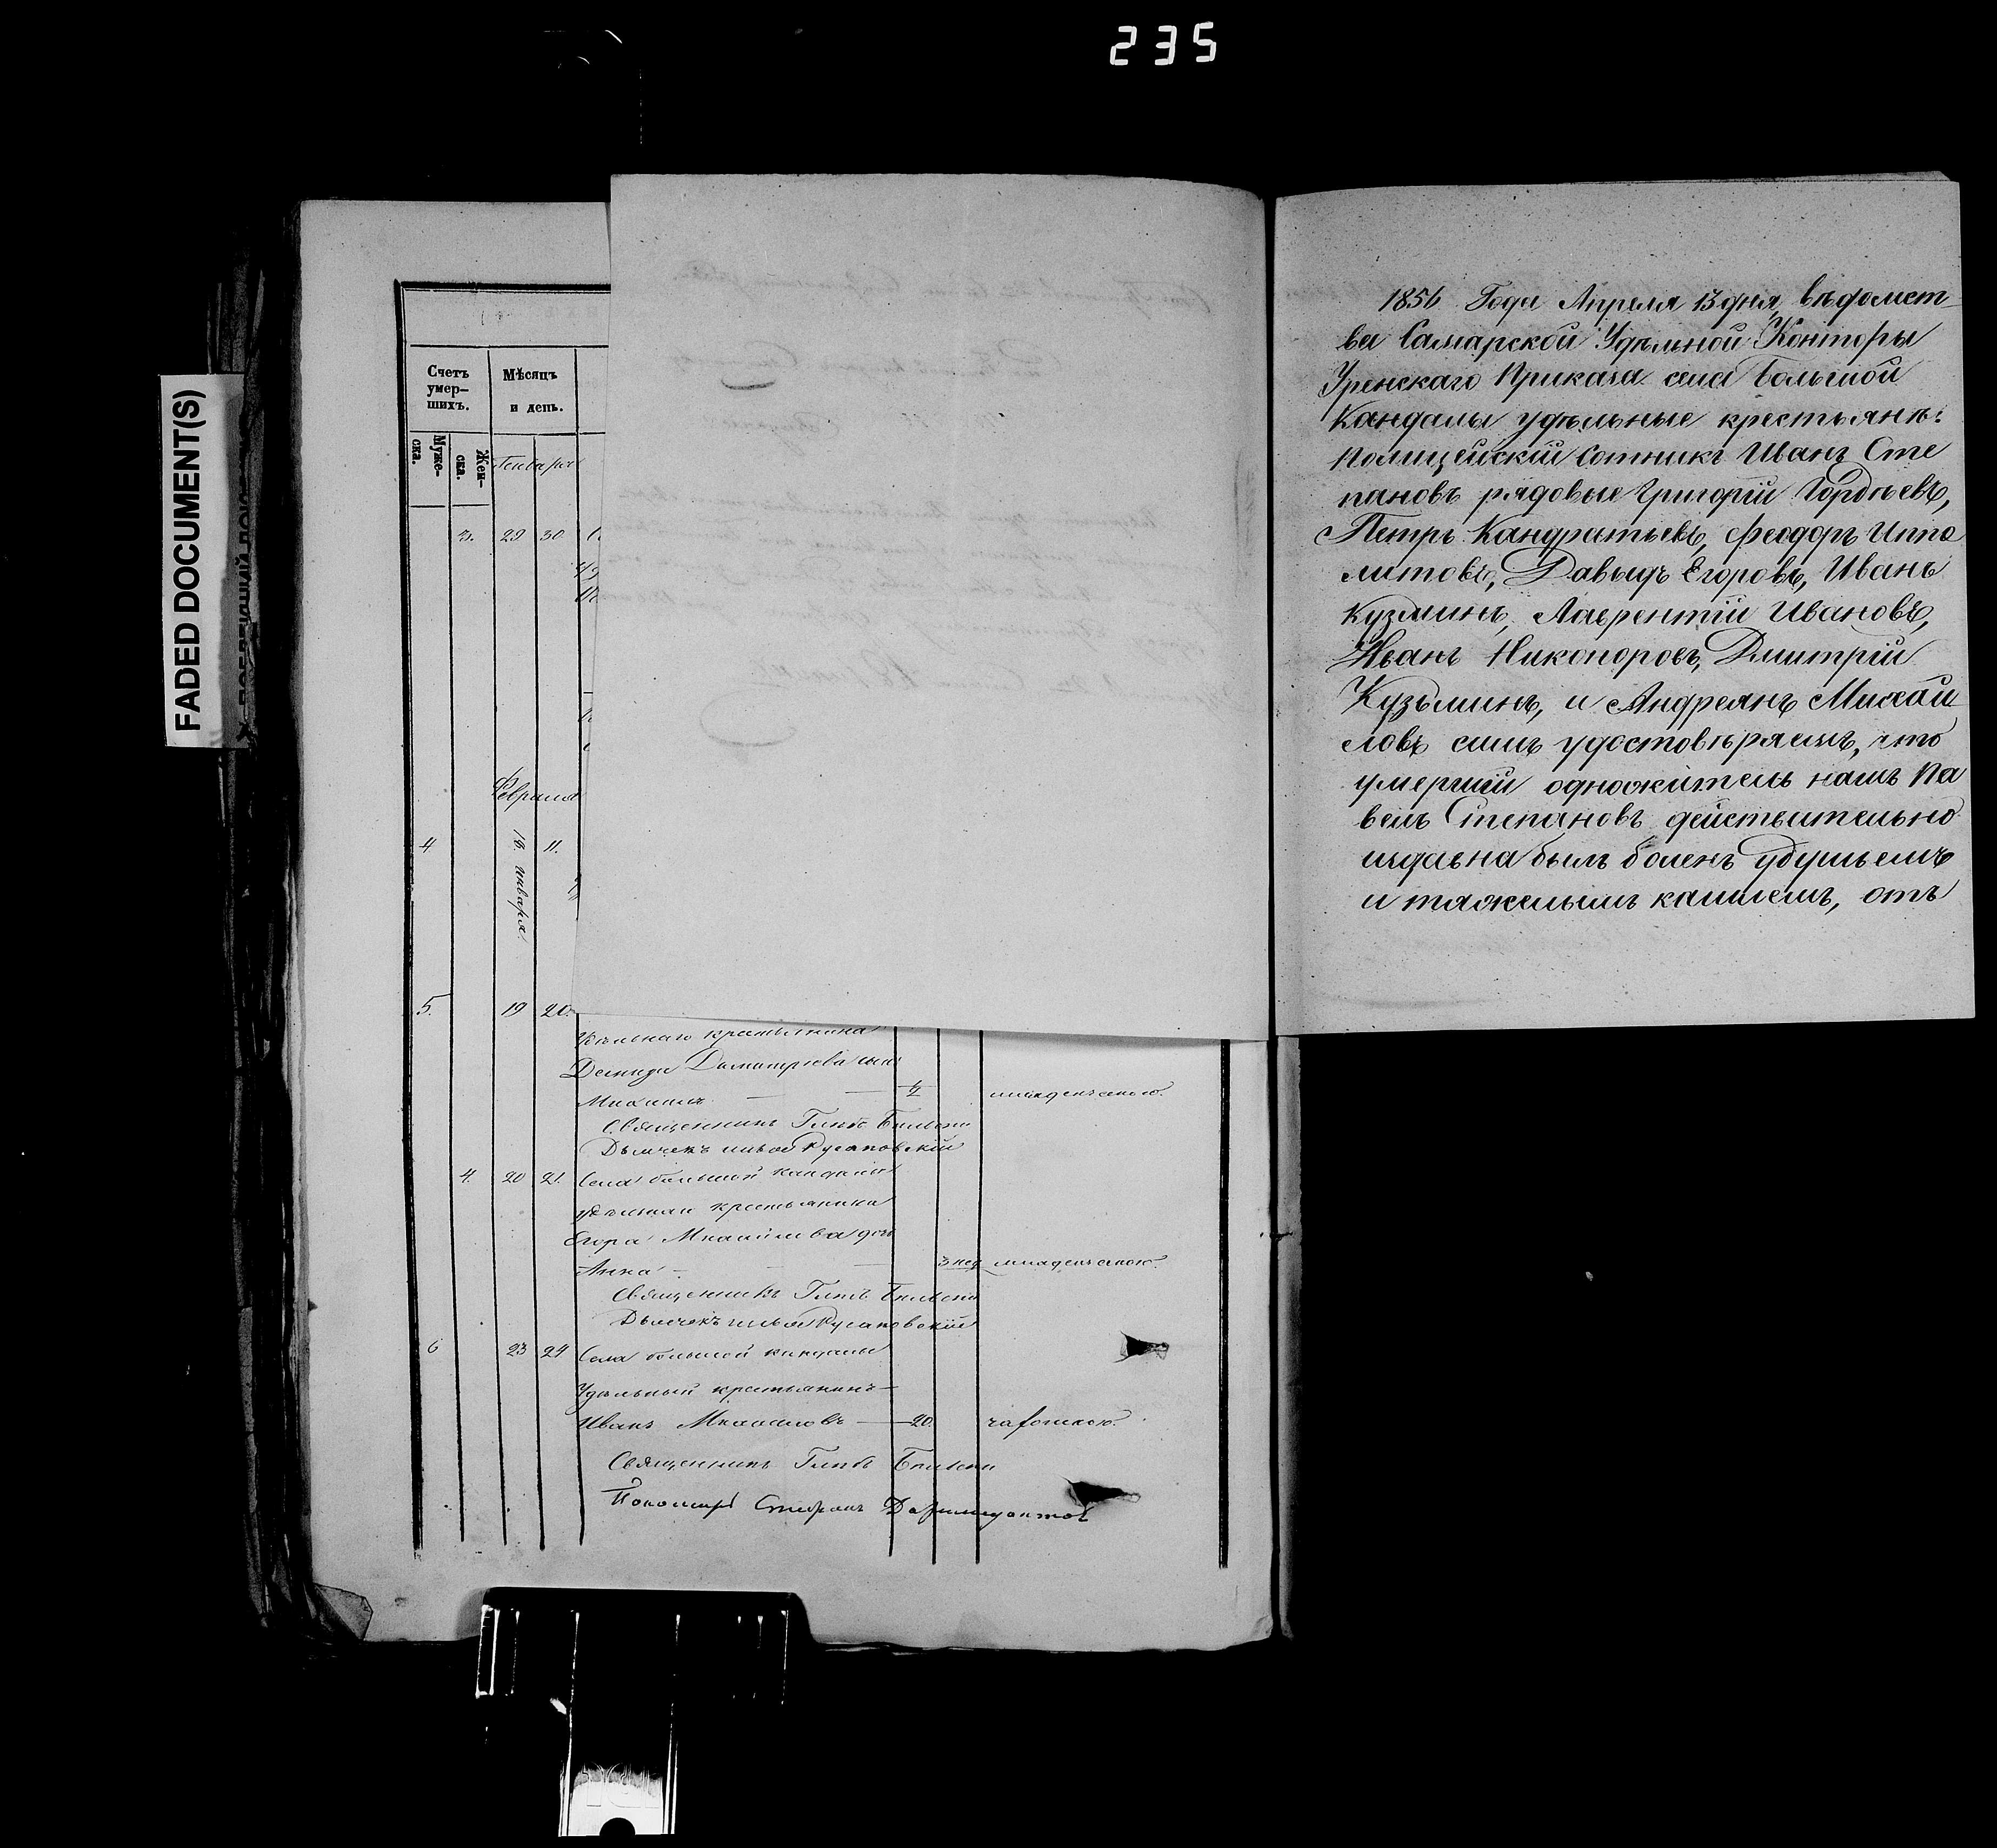 235
FADED DOCUMENT(S)
Счетъ
умер-
шихъ.
Мѣсяцъ
и день.
Муже-
ска.
Жен-
ска.
Генваря
3. 29 30
Февраля
4 16. января. 11.
5. 19 20.
Удѣльнаго крестьянина
Демида Димитріева сынъ
Михаилъ — — младенческою.
Священникъ Глѣбъ
Дьячекъ Илья Русановскій
4. 20 21. Села большой кандалы
удѣльнаго крестьянина
Егора Михайлова дочь
Анна — — 3 нед младенческою.
Священникъ Глѣбъ
Дьячекъ Илья Русановскій
6 23 24 Села большой кандалы
Удѣльный крестьянинъ —
Иванъ Михаиловъ — 20. чахоткою.
Священникъ Глѣбъ
Пономарь Стефанъ
1856 Года Апреля 13 дня, вѣдомст-
ва Самарской Удѣльной Конторы
Уренскаго Приказа села Большой
Кандалы удѣльные крестьянѣ:
Полицейскій Сотникъ Иванъ Сте
пановъ рядовые Григорій Гордѣевъ,
Петръ Кандратьевъ, Феодоръ Иппо
литовъ, Давыдъ Егоровъ, Иванъ
Кузминъ, Лаврентій Ивановъ,
Иванъ Никоноровъ, Дмитрій
Кузьминъ, и Андреянъ Михай
ловъ симъ удостовѣряемъ, что
умершій одножитель нашъ Па
велъ Степановъ действительно
издавна былъ боленъ удушьемъ
и тяжелымъ кашлемъ, отъ